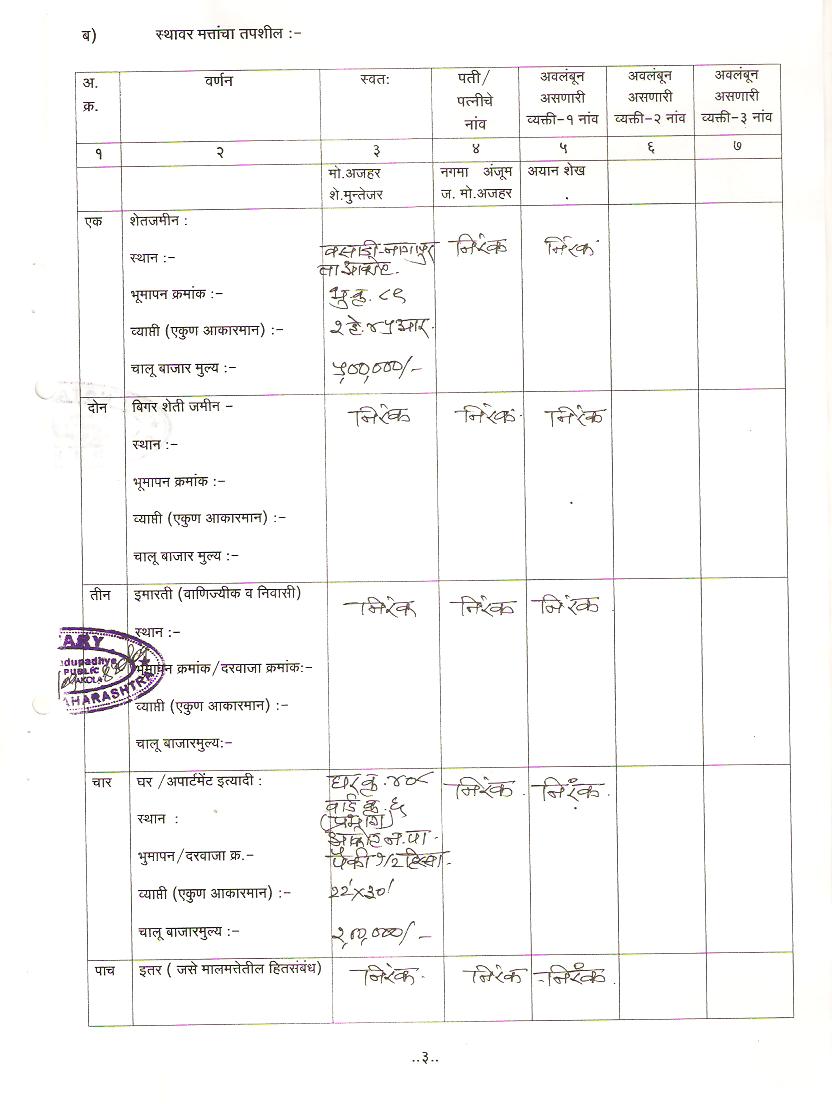 ब) स्थावर मत्तांचा तपशील :-
अ. क्र. वर्णन स्वतः पती/ पत्नीचे नांव अवलंबून असणारी व्यक्ती-१ नांव अवलंबून असणारी व्यक्ती-२ नांव अवलंबून असणारी व्यक्ती-३ नांव
१ २ ३ ४ ५ ६ ७
मो.अजहर नगमा अंजूम अयान शेख
शे.मुन्तेजर ज. मो.अजहर
एक शेतजमीन :
स्थान :- कसाडी-नागापुर निरंक निरंक
ता आकोट.
भूमापन क्रमांक :- भु.क्र. ८९
व्याप्ती (एकुण आकारमान) :- २ हे. ४५ आर.
चालू बाजार मुल्य :- ५,००,०००/-
दोन बिगर शेती जमीन - निरंक निरंक निरंक
स्थान :-
भूमापन क्रमांक :-
व्याप्ती (एकुण आकारमान) :-
चालू बाजार मुल्य :-
तीन इमारती (वाणिज्यीक व निवासी) निरंक निरंक निरंक
स्थान :-
भुमापन क्रमांक/दरवाजा क्रमांक:-
व्याप्ती (एकुण आकारमान) :-
चालू बाजारमुल्य:-
ARY
dupadhye
PUBLIC
AKOLA
AHARASHTRA
चार घर /अपार्टमेंट इत्यादी : घर क्र. ४०८ निरंक. निरंक.
वार्ड क्र. ६
स्थान : (प्रभाग)
आकोट न.पा.
भुमापन/दरवाजा क्र.- पैकी १/२ हिस्सा.
व्याप्ती (एकुण आकारमान) :- २२'×३०'
चालू बाजारमुल्य :- २,००,०००/-
पाच इतर ( जसे मालमत्तेतील हितसंबंध) निरंक. निरंक निरंक.
..३..